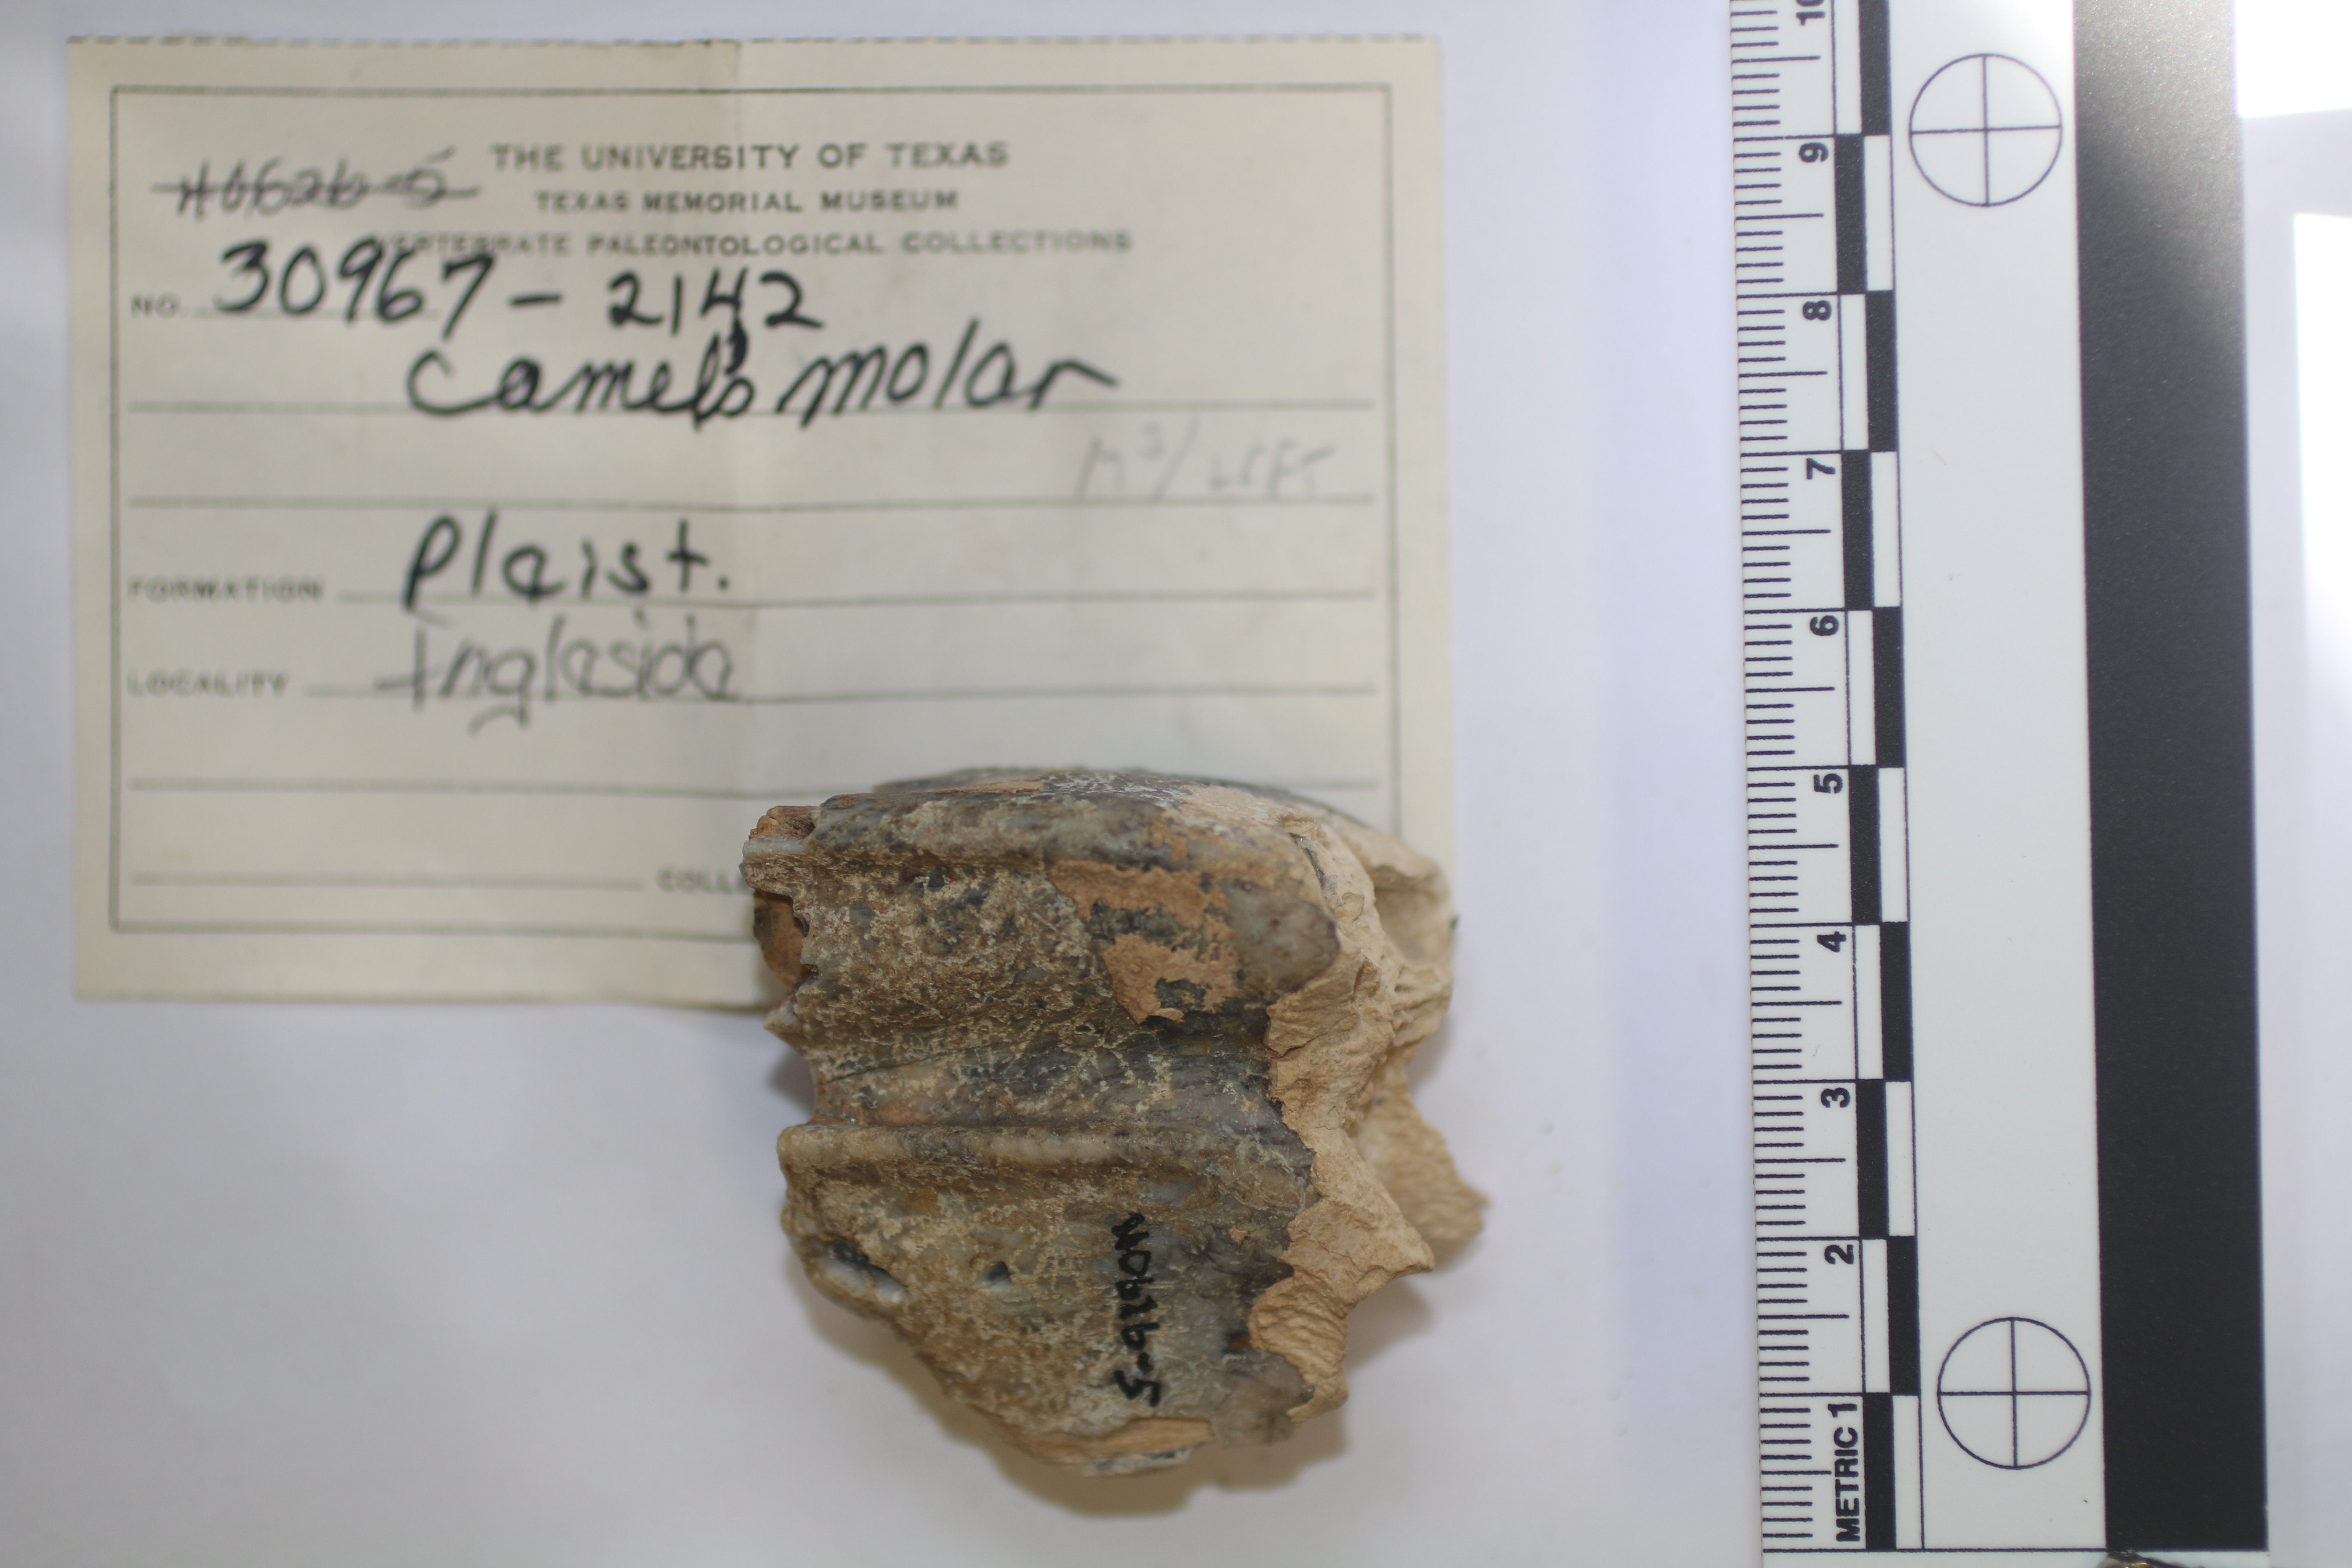 THE UNIVERSITY OF TEXAS
TEXAS MEMORIAL MUSEUM
VERTEBRATE PALEONTOLOGICAL COLLECTIONS
NO. 30967-2142
Camel's molar
M3/ LEFT
FORMATION Pleist.
LOCALITY Ingleside
COLLE
10
9
8
7
6
5
4
3
2
METRIC 1